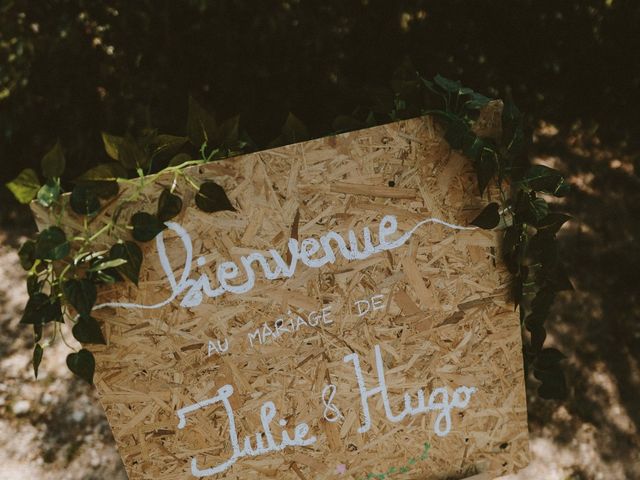 bienvenue
AU MARIAGE DE
Julie & Hugo